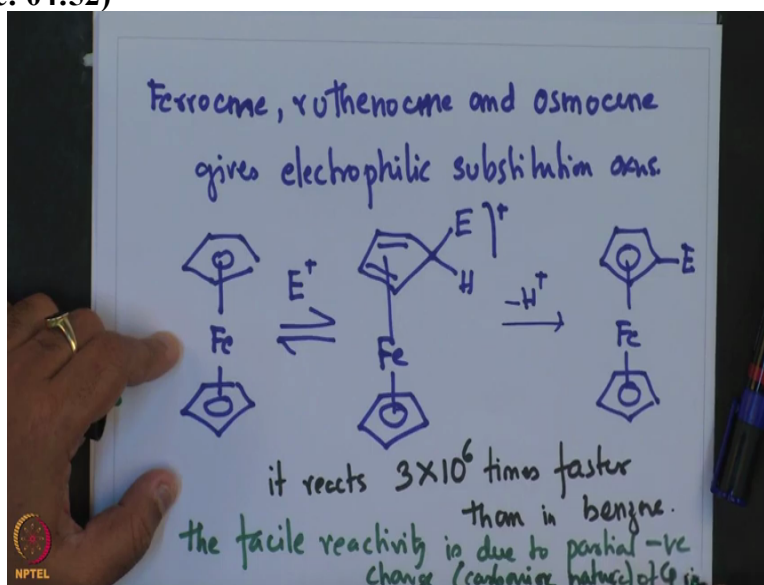 c: 04:52)
Ferrocme, ruthenocme and osmocene
gives electrophilic substitution
E⁺
E ]⁺
H
-H⁺
E
Fe
Fe
Fe
it reacts 3×10⁶ times faster
than in benzne.
the facile reactivity is due to partial -ve
charge (carbanion nature) of Cp in
NPTEL